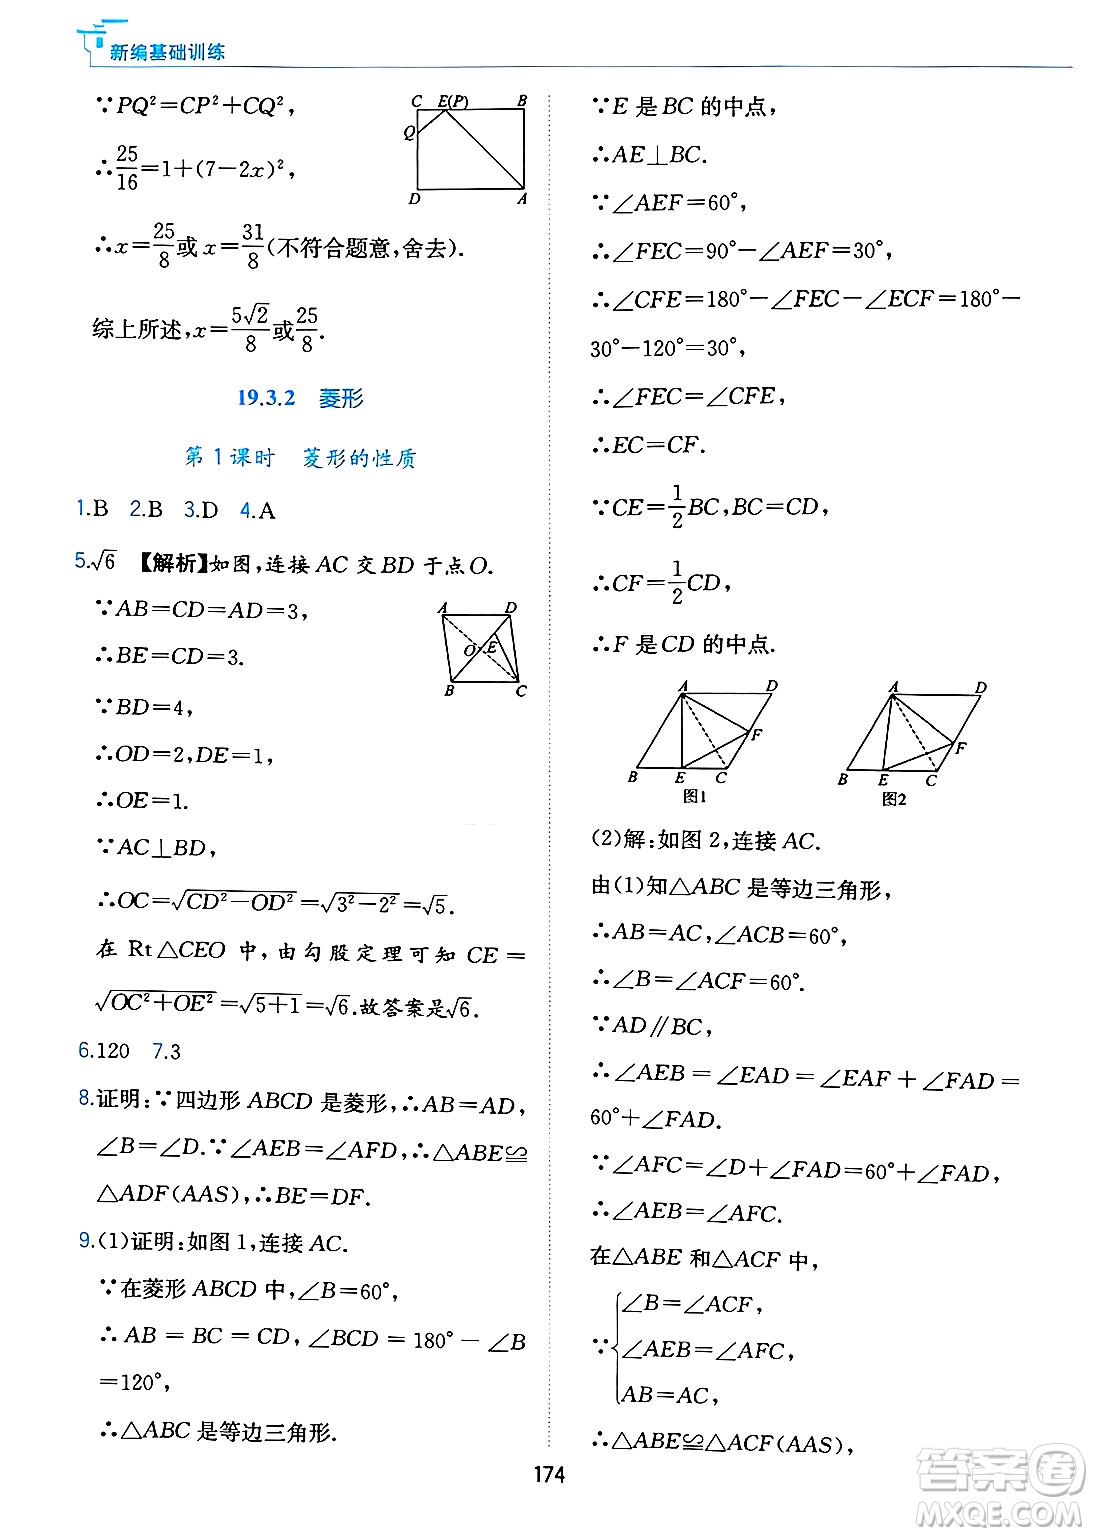 新编基础训练
∵PQ²=CP²+CQ²,
C E(P) B
Q
D A
∴25/16=1+(7-2x)²,
∴x=25/8或x=31/8(不符合题意,舍去).
综上所述,x=5√2/8或25/8.
19.3.2 菱形
第1课时 菱形的性质
1.B 2.B 3.D 4.A
5.√6 【解析】如图,连接AC交BD于点O.
∵AB=CD=AD=3,
A D
O E
B C
∴BE=CD=3.
∵BD=4,
∴OD=2,DE=1,
∴OE=1.
∵AC⊥BD,
∴OC=√(CD²-OD²)=√(3²-2²)=√5.
在 Rt△CEO 中,由勾股定理可知 CE=
√(OC²+OE²)=√(5+1)=√6.故答案是√6.
6.120 7.3
8.证明:∵四边形ABCD是菱形,∴AB=AD,
∠B=∠D.∵∠AEB=∠AFD,∴△ABE≌
△ADF(AAS),∴BE=DF.
9.(1)证明:如图1,连接AC.
∵在菱形ABCD中,∠B=60°,
∴AB=BC=CD,∠BCD=180°-∠B
=120°,
∴△ABC是等边三角形.
∵E是BC的中点,
∴AE⊥BC.
∵∠AEF=60°,
∴∠FEC=90°-∠AEF=30°,
∴∠CFE=180°-∠FEC-∠ECF=180°-
30°-120°=30°,
∴∠FEC=∠CFE,
∴EC=CF.
∵CE=1/2BC,BC=CD,
∴CF=1/2CD,
∴F是CD的中点.
A D
F
B E C
图1
A D
F
B E C
图2
(2)解:如图2,连接AC.
由(1)知△ABC是等边三角形,
∴AB=AC,∠ACB=60°,
∴∠B=∠ACF=60°.
∵AD∥BC,
∴∠AEB=∠EAD=∠EAF+∠FAD=
60°+∠FAD.
∵∠AFC=∠D+∠FAD=60°+∠FAD,
∴∠AEB=∠AFC.
在△ABE和△ACF中,
∠B=∠ACF,
∵ ∠AEB=∠AFC,
AB=AC,
∴△ABE≌△ACF(AAS),
174
答案卷
MXQE.COM